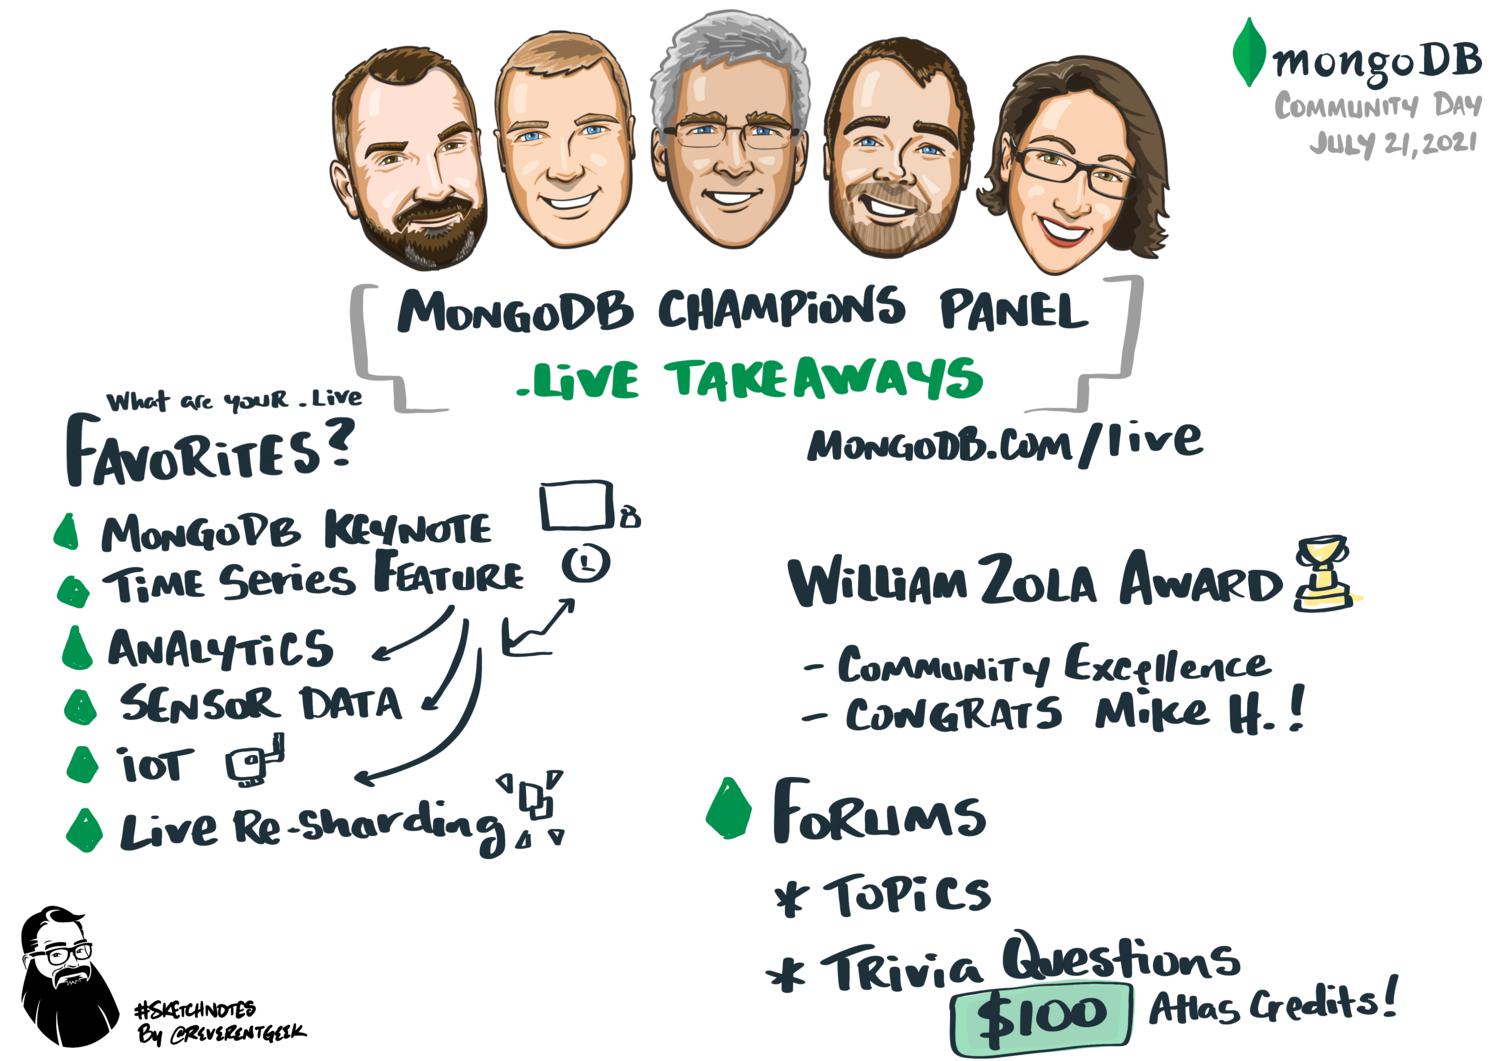 mongoDB
COMMUNITY DAY
JULY 21, 2021
MONGODB CHAMPIONS PANEL
.LIVE TAKEAWAYS
MONGODB.COM/live
What are your .Live
FAVORITES?
MONGODB KEYNOTE
TIME Series FEATURE
ANALYTICS
SENSOR DATA
IOT
Live Re-Sharding
WILLIAM ZOLA AWARD
- COMMUNITY Excellence
- CONGRATS Mike H.!
FORUMS
* TOPICS
* TRivia Questions
$100 Atlas Credits!
#SKETCHNOTES
By @REVERENTGEEK